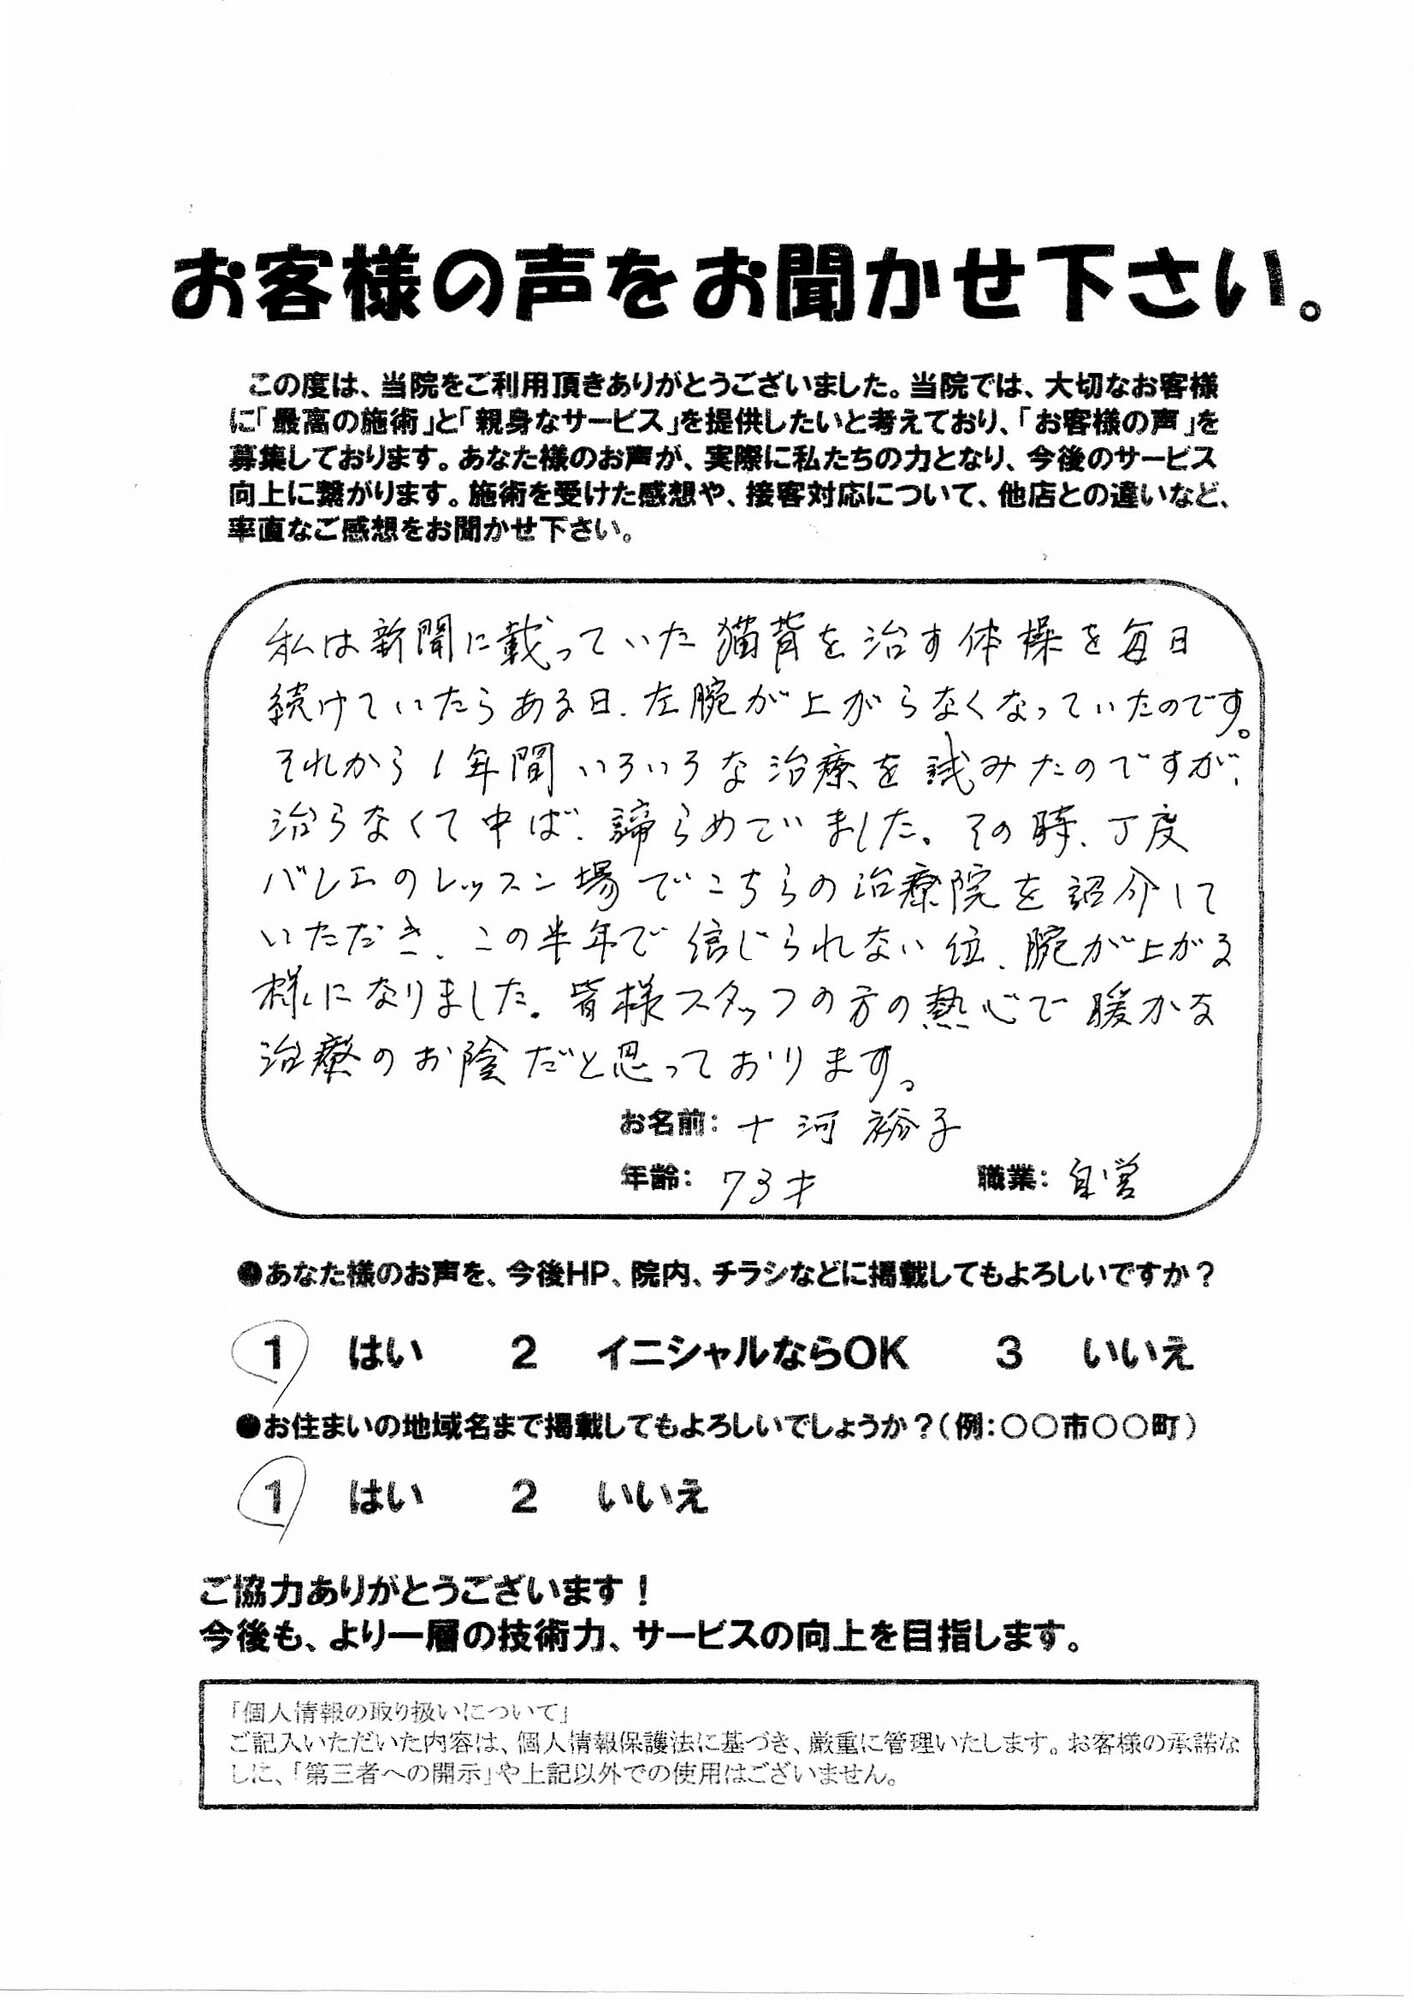 お客様の声をお聞かせ下さい。
この度は、当院をご利用頂きありがとうございました。当院では、大切なお客様
に「最高の施術」と「親身なサービス」を提供したいと考えており、「お客様の声」を
募集しております。あなた様のお声が、実際に私たちの力となり、今後のサービス
向上に繋がります。施術を受けた感想や、接客対応について、他店との違いなど、
率直なご感想をお聞かせ下さい。
私は新聞に載っていた猫背を治す体操を毎日
続けていたらある日、左腕が上がらなくなっていたのです。
それから1年間いろいろな治療を試みたのですが、
治らなくて中ば、諦らめていました。その時、丁度
バレエのレッスン場でこちらの治療院を紹介して
いただき、この半年で信じられない位、腕が上がる
様になりました。皆様スタッフの方の熱心で暖かな
治療のお陰だと思っております。
お名前：十河裕子
年齢：73才 職業：自営
●あなた様のお声を、今後HP、院内、チラシなどに掲載してもよろしいですか？
1 はい 2 イニシャルならOK 3 いいえ
●お住まいの地域名まで掲載してもよろしいでしょうか？（例：〇〇市〇〇町）
1 はい 2 いいえ
ご協力ありがとうございます！
今後も、より一層の技術力、サービスの向上を目指します。
「個人情報の取り扱いについて」
ご記入いただいた内容は、個人情報保護法に基づき、厳重に管理いたします。お客様の承諾な
しに、「第三者への開示」や上記以外での使用はございません。